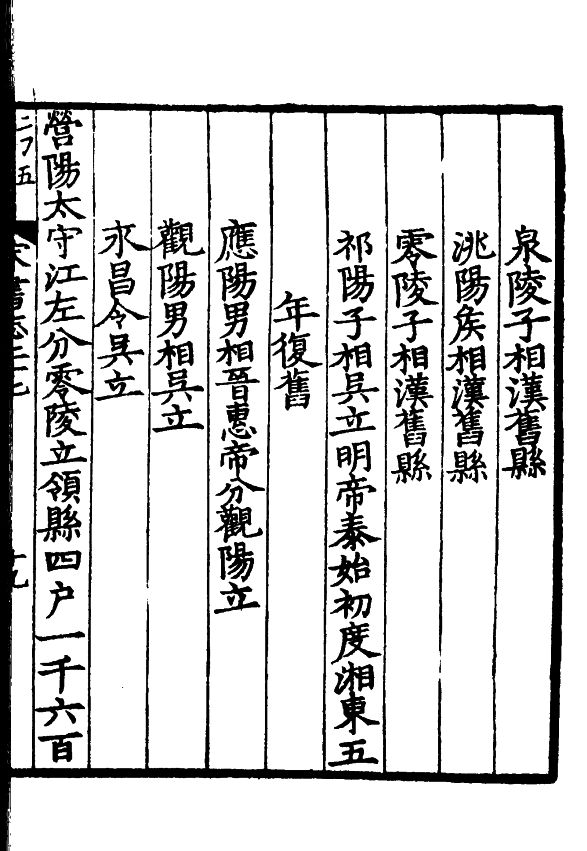 泉陵子相漢舊縣
洮陽侯相漢舊縣
零陵子相漢舊縣
祁陽子相吳立明帝泰始初度湘東五
年復舊
應陽男相晉惠帝分觀陽立
觀陽男相吳立
永昌令吳立
營陽太守江左分零陵立領縣四户一千六百